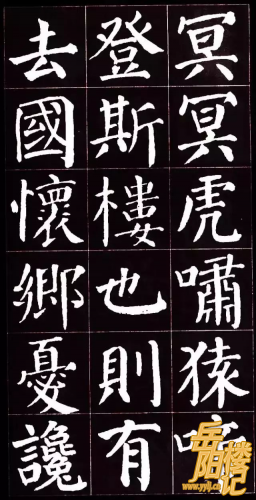 冥冥虎嘯猿啼
登斯樓也則有
去國懷鄉憂讒
岳阳楼记